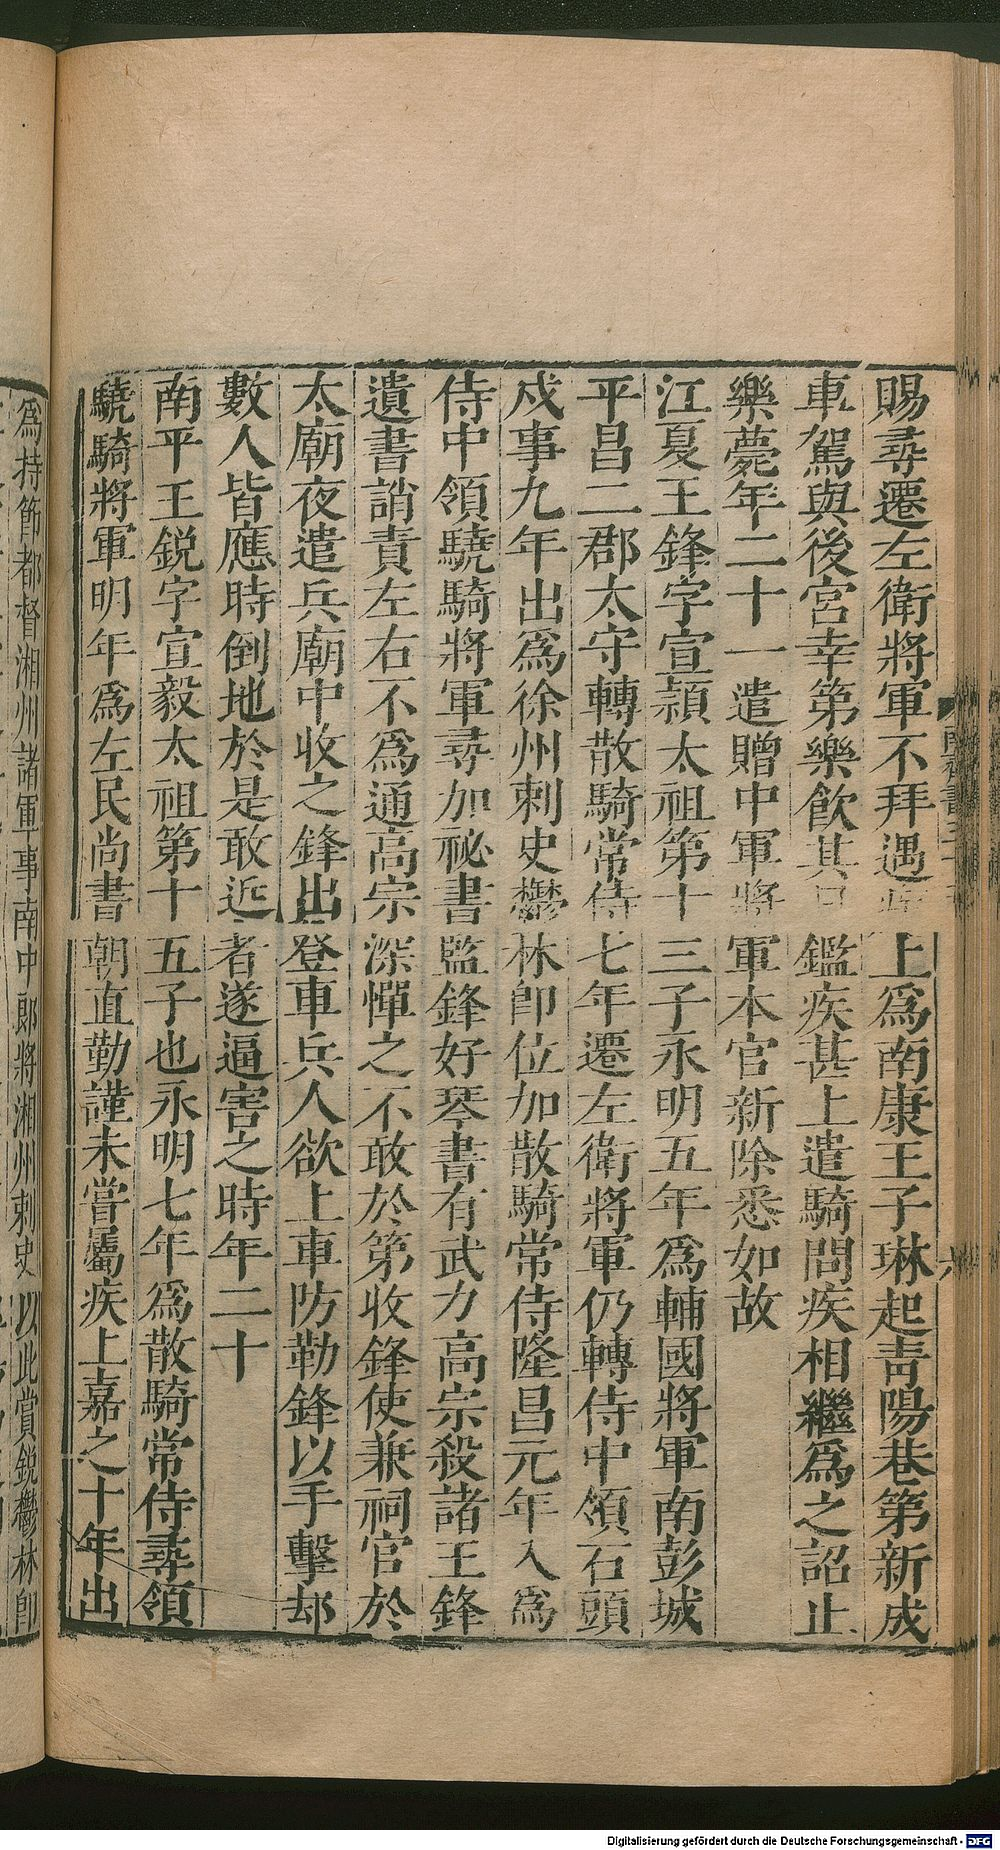 賜尋遷左衛將軍不拜遇疾上爲南康王子琳起靑陽巷第新成
車駕與後宮幸第樂飮其日鑑疾甚上遣騎問疾相繼爲之詔止
樂薨年二十一遣贈中軍將軍本官新除悉如故
江夏王鋒字宣穎太祖第十三子永明五年爲輔國將軍南彭城
平昌二郡太守轉散騎常侍七年遷左衛將軍仍轉侍中領石頭
戍事九年出爲徐州刺史鬱林卽位加散騎常侍隆昌元年入爲
侍中領驍騎將軍尋加祕書監鋒好琴書有武力高宗殺諸王鋒
遺書誚責左右不爲通高宗深憚之不敢於第收鋒使兼祠官於
太廟夜遣兵廟中收之鋒出登車兵人欲上車防勒鋒以手擊却
數人皆應時倒地於是敢近者遂逼害之時年二十
南平王銳字宣毅太祖第十五子也永明七年爲散騎常侍尋領
驍騎將軍明年爲左民尚書朝直勤謹未嘗屬疾上嘉之十年出
爲持節都督湘州諸軍事南中郎將湘州刺史以此賞銳鬱林卽
Digitalisierung gefördert durch die Deutsche Forschungsgemeinschaft - DFG